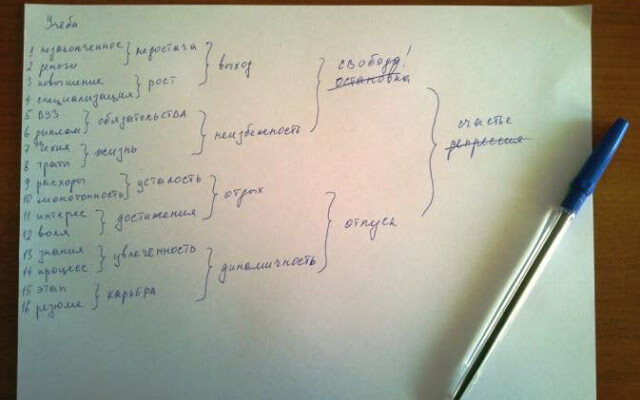 Учёба
1 незаконченное
2 деньги
недостача
3 повышение
4 специализация
рост
выход
5 ВУЗ
6 диплом
обязательства
7 Чехия
8 траты
жизнь
неизбежность
свобода!
остановка
9 расходы
10 монотонность
усталость
11 интерес
12 воля
достижения
отдых
13 знания
14 процесс
увлечённость
15 этап
16 резюме
карьера
динамичность
отпуск
счастье
депрессия